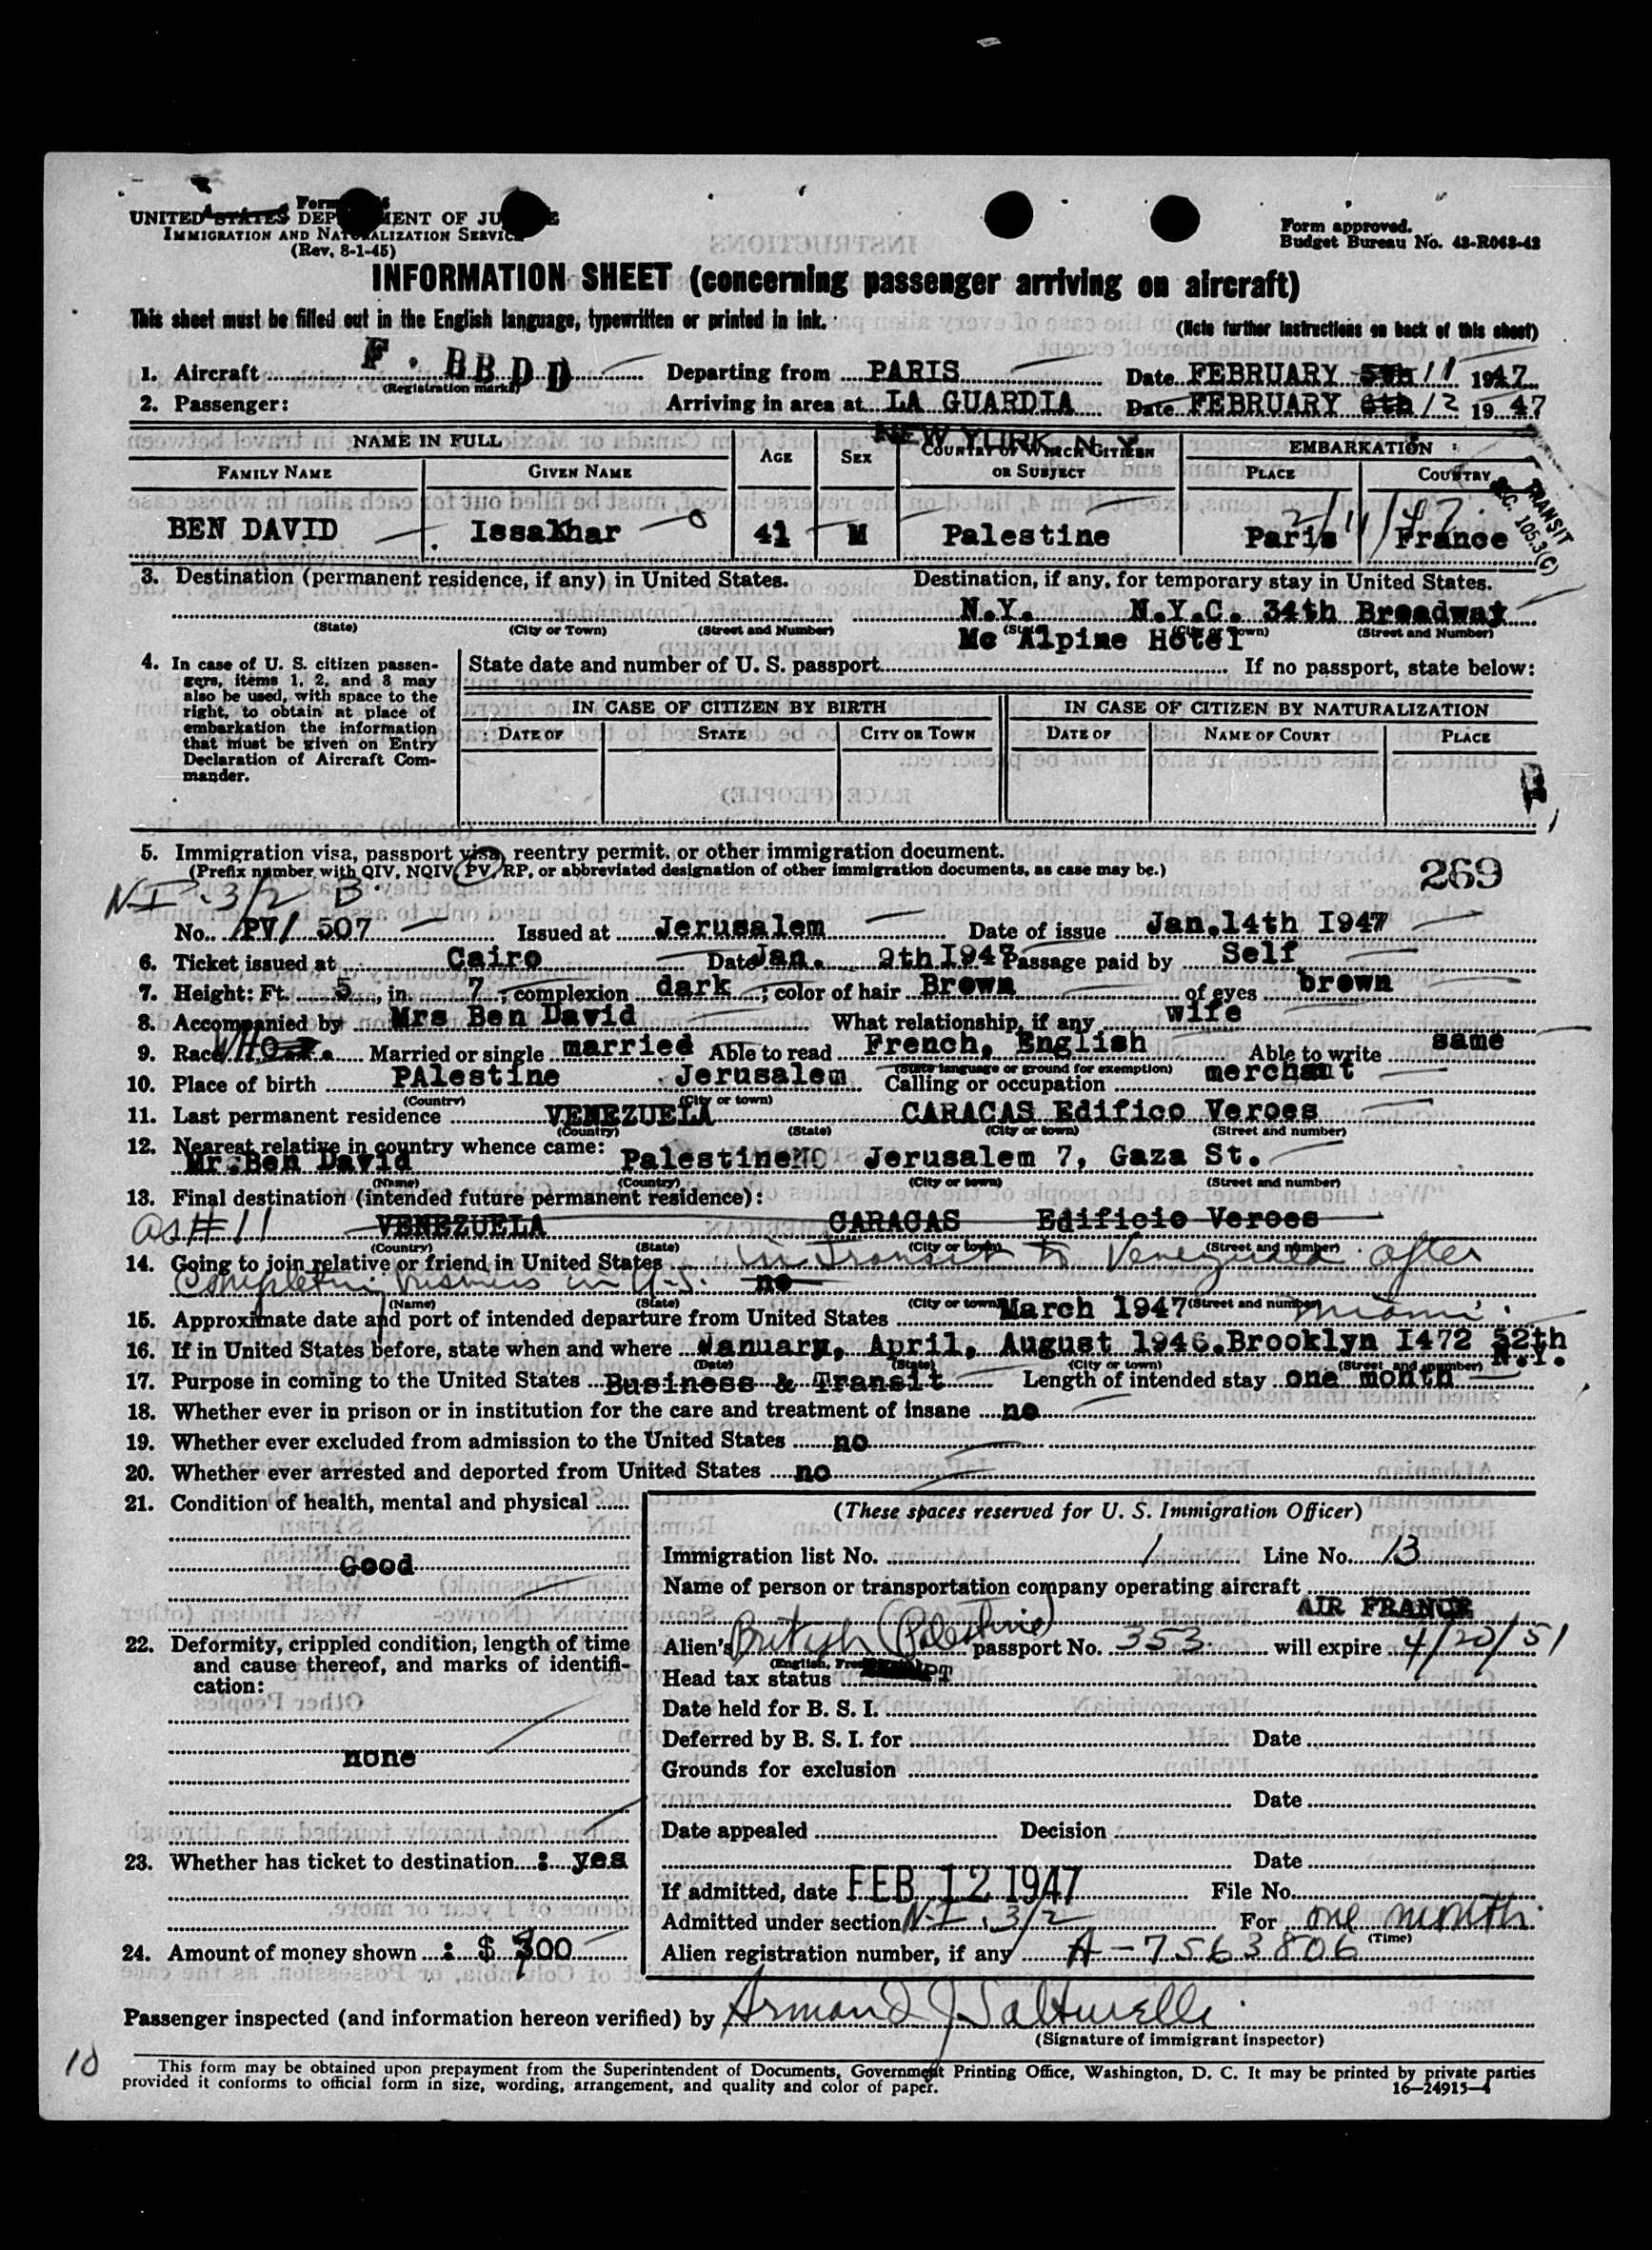 Form
UNITED STATES DEPARTMENT OF JUSTICE
IMMIGRATION AND NATURALIZATION SERVICE
(Rev. 8-1-45)
Form approved.
Budget Bureau No. 43-R068-42
INFORMATION SHEET (concerning passenger arriving on aircraft)
This sheet must be filled out in the English language, typewritten or printed in ink. (Note further instructions on back of this sheet)
1. Aircraft F. BBDD Departing from PARIS Date FEBRUARY 5th 11 1947
(Registration marks)
2. Passenger: Arriving in area at LA GUARDIA Date FEBRUARY 6th 12 1947
NEW YORK N.Y.
NAME IN FULL AGE SEX COUNTRY OF WHICH CITIZEN OR SUBJECT EMBARKATION
FAMILY NAME GIVEN NAME PLACE COUNTRY
TRANSIT
SEC. 105.3(C)
2/11/47
BEN DAVID Issakhar 41 M Palestine Paris France
3. Destination (permanent residence, if any) in United States. Destination, if any, for temporary stay in United States.
N.Y. N.Y.C. 34th Broadway
(State) (City or Town) (Street and Number) (State) (City or Town) (Street and Number)
Mc Alpine Hotel
4. In case of U. S. citizen passengers, items 1, 2, and 3 may also be used, with space to the right, to obtain at place of embarkation the information that must be given on Entry Declaration of Aircraft Commander.
State date and number of U. S. passport If no passport, state below:
IN CASE OF CITIZEN BY BIRTH IN CASE OF CITIZEN BY NATURALIZATION
DATE OF STATE CITY OR TOWN DATE OF NAME OF COURT PLACE
5. Immigration visa, passport visa, reentry permit, or other immigration document.
(Prefix number with QIV, NQIV, PV, RP, or abbreviated designation of other immigration documents, as case may be.)
269
N-I. 3/2 B
No. PV/ 507 Issued at Jerusalem Date of issue Jan.14th I947
6. Ticket issued at Cairo Date Jan. 9th I947 Passage paid by Self
7. Height: Ft. 5, in. 7; complexion dark; color of hair Brown of eyes brown
8. Accompanied by Mrs Ben David What relationship, if any wife
9. Race Married or single married Able to read French, English Able to write same
(State language or ground for exemption)
10. Place of birth PAlestine Jerusalem Calling or occupation merchant
(Country) (City or town)
11. Last permanent residence VENEZUELA CARACAS Edifico Veroes
(Country) (State) (City or town) (Street and number)
12. Nearest relative in country whence came:
Mr.Ben David Palestine Jerusalem 7, Gaza St.
(Name) (Country) (City or town) (Street and number)
13. Final destination (intended future permanent residence):
as #11 VENEZUELA CARACAS Edificio Veroes
(Country) (State) (City or town) (Street and number)
14. Going to join relative or friend in United States in transit to Venezuela after
completing business in U.S. no
(Name) (State) (City or town) (Street and number)
15. Approximate date and port of intended departure from United States March 1947 Miami
16. If in United States before, state when and where January, April, August 1946. Brooklyn I472 52th N.Y.
(Date) (State) (City or town) (Street and number)
17. Purpose in coming to the United States Business & Transit Length of intended stay one month
18. Whether ever in prison or in institution for the care and treatment of insane no
19. Whether ever excluded from admission to the United States no
20. Whether ever arrested and deported from United States no
21. Condition of health, mental and physical
Good
22. Deformity, crippled condition, length of time and cause thereof, and marks of identification:
none
23. Whether has ticket to destination : yes
24. Amount of money shown : $ 900
(These spaces reserved for U. S. Immigration Officer)
Immigration list No. 1 Line No. 13
Name of person or transportation company operating aircraft
AIR FRANCE
Alien's British (Palestine) passport No. 353 will expire 4/20/51
Head tax status
Date held for B. S. I.
Deferred by B. S. I. for Date
Grounds for exclusion
Date
Date appealed Decision
Date
If admitted, date FEB 12 1947 File No.
Admitted under section N-I. 3/2 For one month
(Time)
Alien registration number, if any A-7563806
Passenger inspected (and information hereon verified) by Armand J.
(Signature of immigrant inspector)
10
This form may be obtained upon prepayment from the Superintendent of Documents, Government Printing Office, Washington, D. C. It may be printed by private parties
provided it conforms to official form in size, wording, arrangement, and quality and color of paper. 16—24915-4